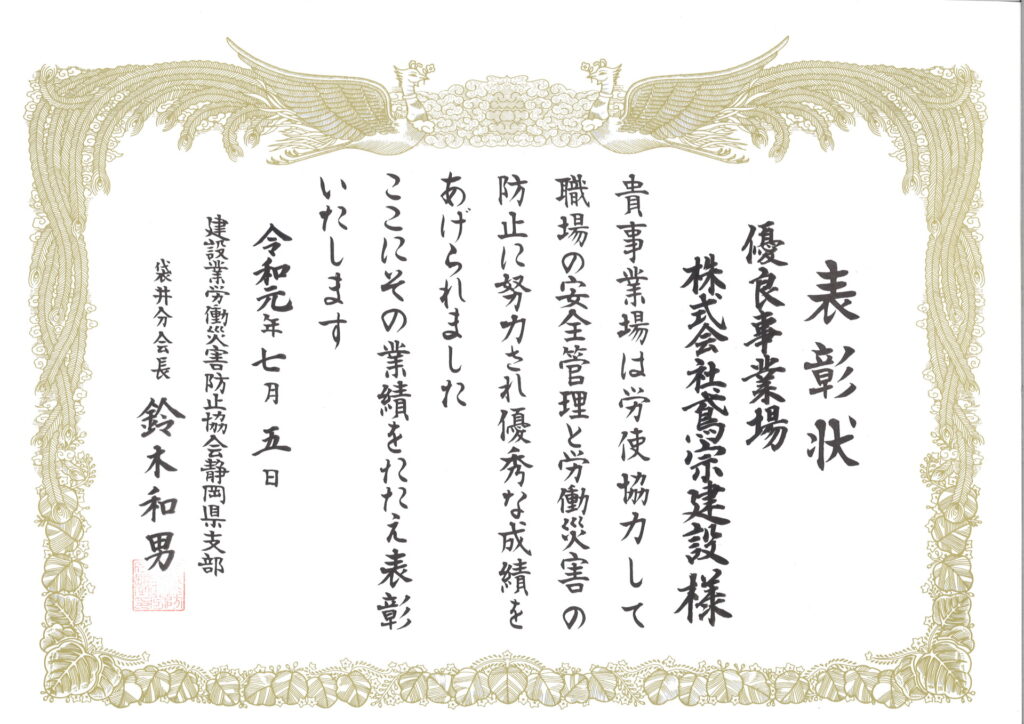 表彰状
優良事業場
株式会社鳶宗建設様
貴事業場は労使協力して
職場の安全管理と労働災害の
防止に努力され優秀な成績を
あげられました
ここにその業績をたたえ表彰
いたします
令和元年七月五日
建設業労働災害防止協会静岡県支部
袋井分会長 鈴木和男